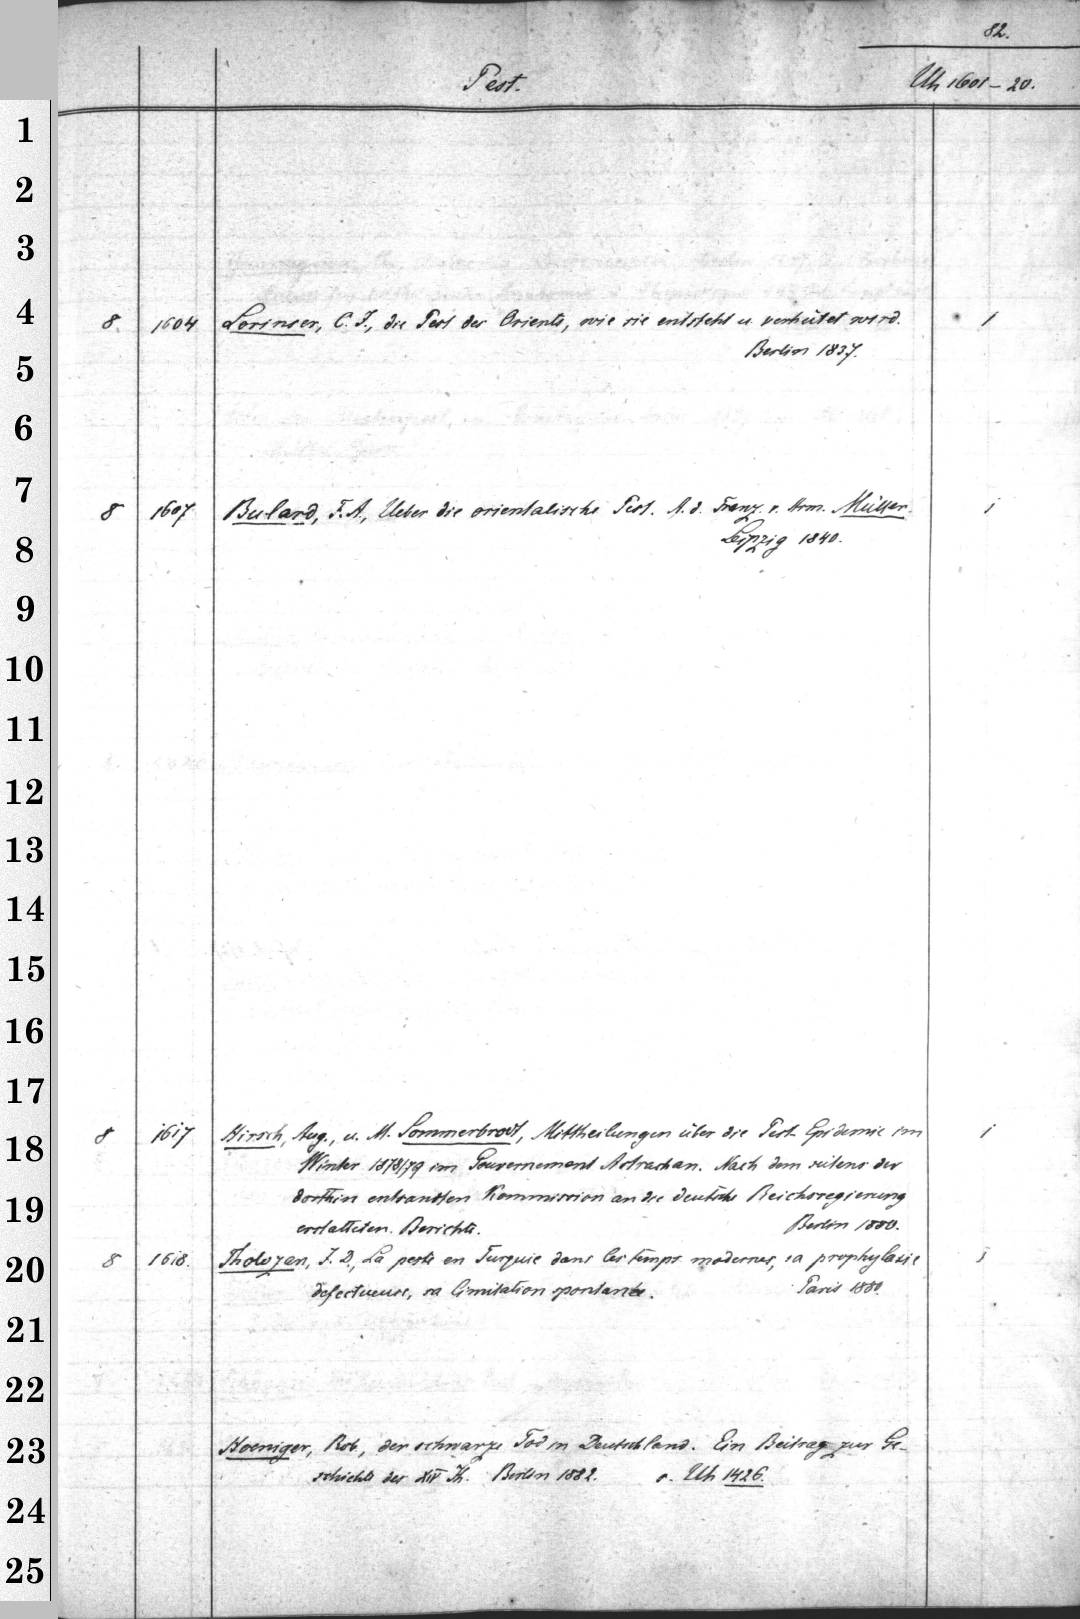 82.
Pest. Uh 1601-20.
8. 1604 Lorinser, C. J., die Pest des Orients, wie sie entsteht u. verhütet wird. 1
Berlin 1837.
8 1607 Bulard, F. A., Ueber die orientalische Pest. A. d. Franz. v. Herm. Müller. 1
Leipzig 1840.
8 1617 Hirsch, Aug., u. M. Sommerbrodt, Mittheilungen über die Pest-Epidemie im 1
Winter 1878/79 im Gouvernement Astrachan. Nach dem seitens der
dorthin entsandten Kommission an die deutsche Reichsregierung
erstatteten Berichte. Berlin 1880.
8 1618. Tholozan, J. D., La peste en Turquie dans les temps modernes, sa prophylaxie 1
défectueuse, sa limitation spontanée. Paris 1880.
Hoeniger, Rob., der schwarze Tod in Deutschland. Ein Beitrag zur Ge-
schichte des XIV Jh. Berlin 1882. s. Uh 1426.
1
2
3
4
5
6
7
8
9
10
11
12
13
14
15
16
17
18
19
20
21
22
23
24
25